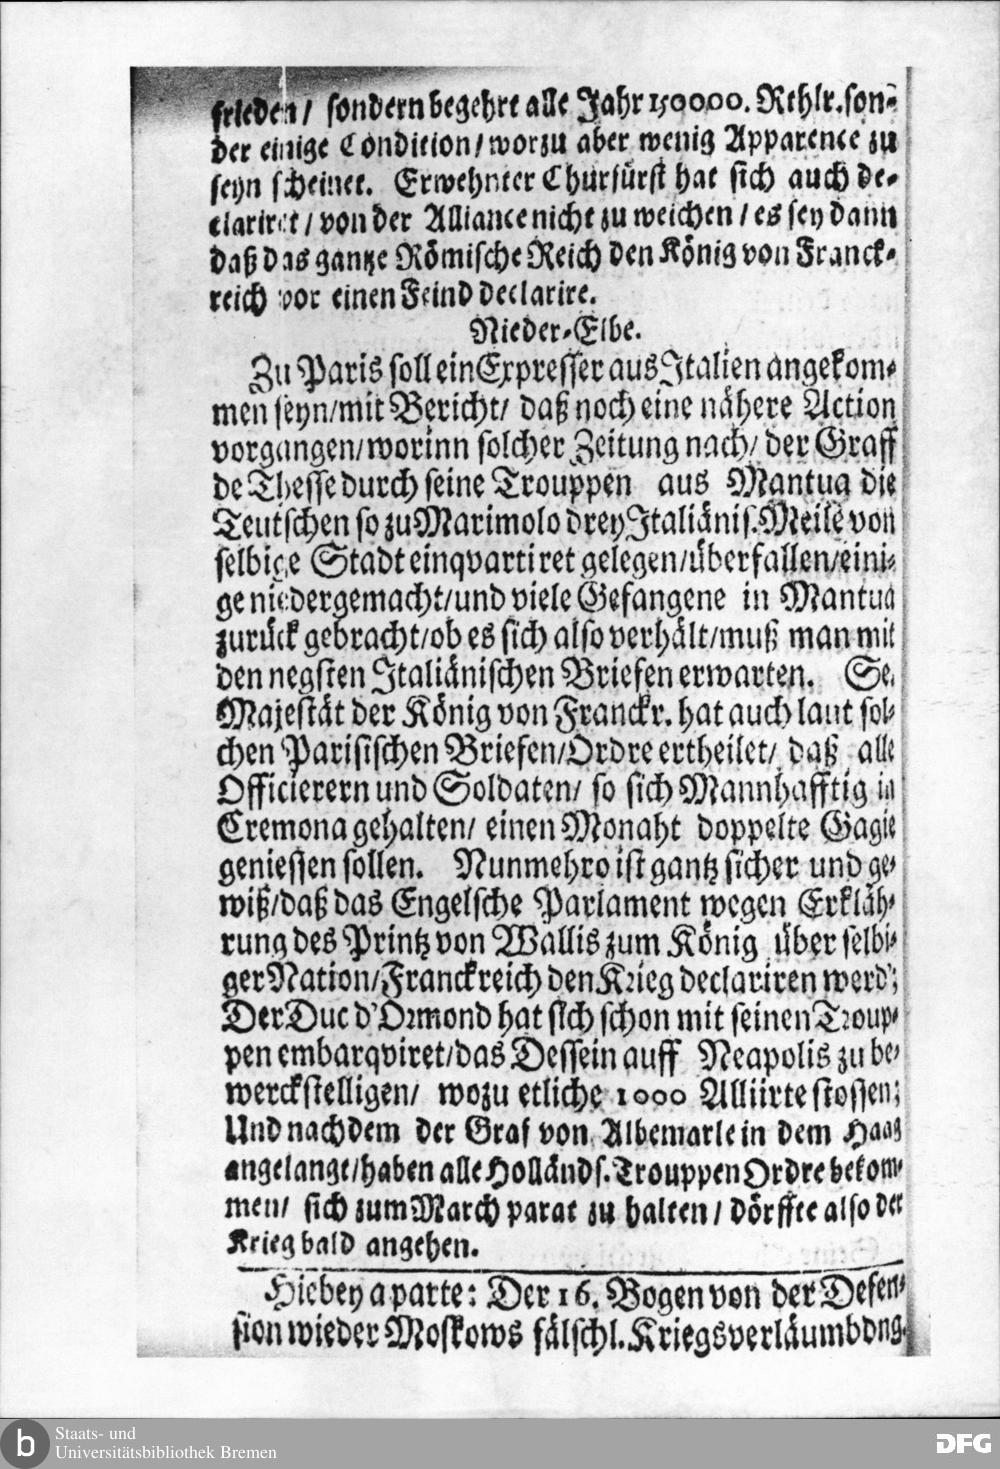 frieden/ sondern begehrt alle Jahr 150000. Rthlr. son-
der einige Condition/ worzu aber wenig Apparence zu
seyn scheinet. Erwehnter Churfürst hat sich auch de-
clariret/ von der Alliance nicht zu weichen/ es sey dann
daß das gantze Römische Reich den König von Franck-
reich vor einen Feind declarire.
Nieder-Elbe.
Zu Paris soll ein Expresser aus Italien angekom-
men seyn/ mit Bericht/ daß noch eine nähere Action
vorgangen/ worinn solcher Zeitung nach/ der Graff
de Thesse durch seine Trouppen aus Mantua die
Teutschen so zu Marimolo drey Italiänis. Meile von
selbige Stadt einqvartiret gelegen/ überfallen/ eini-
ge niedergemacht/ und viele Gefangene in Mantua
zurück gebracht/ ob es sich also verhält/ muß man mit
den negsten Italiänischen Briefen erwarten. Se.
Majestät der König von Franckr. hat auch laut sol-
chen Parisischen Briefen/ Ordre ertheilet/ daß alle
Officierern und Soldaten/ so sich Mannhafftig in
Cremona gehalten/ einen Monaht doppelte Gagie
geniessen sollen. Nunmehro ist gantz sicher und ge-
wiß/ daß das Engelsche Parlament wegen Erkläh-
rung des Printz von Wallis zum König über selbi-
ger Nation/ Franckreich den Krieg declariren werd';
Der Duc d'Ormond hat sich schon mit seinen Troup-
pen embarqviret/ das Dessein auff Neapolis zu be-
werckstelligen/ wozu etliche 1000 Alliirte stossen;
Und nachdem der Graf von Albemarle in dem Haag
angelanget/ haben alle Holländs. Trouppen Ordre bekom-
men/ sich zum March parat zu halten/ dörffte also der
Krieg bald angehen.
Hiebey aparte: Der 16. Bogen von der Defen-
sion wieder Moskows fälschl. Kriegsverläumbdng.
b
Staats- und
Universitätsbibliothek Bremen
DFG